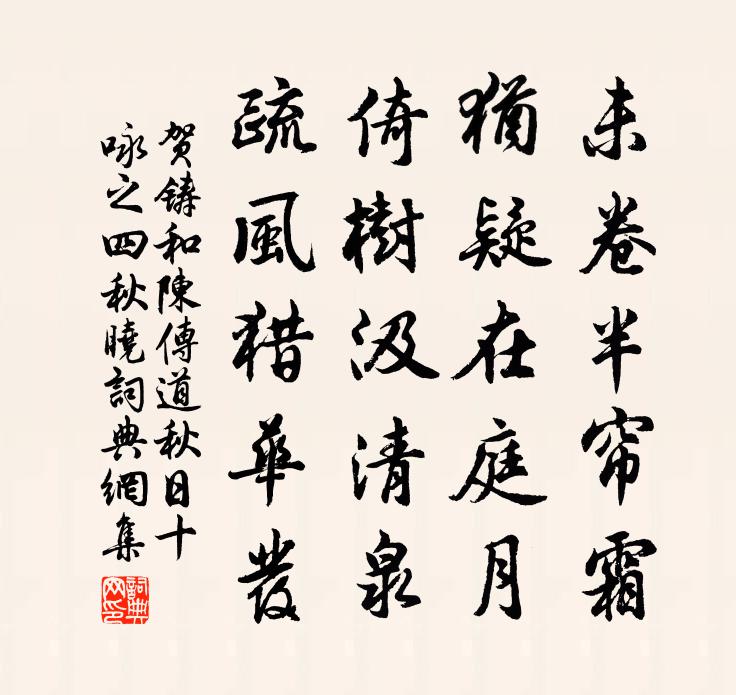 未卷半帘霜
猶疑在庭月
倚樹汲清泉
疏風猎華发
贺鑄和陳傳道秋日十
咏之四秋曉詞典網集
詞典网印